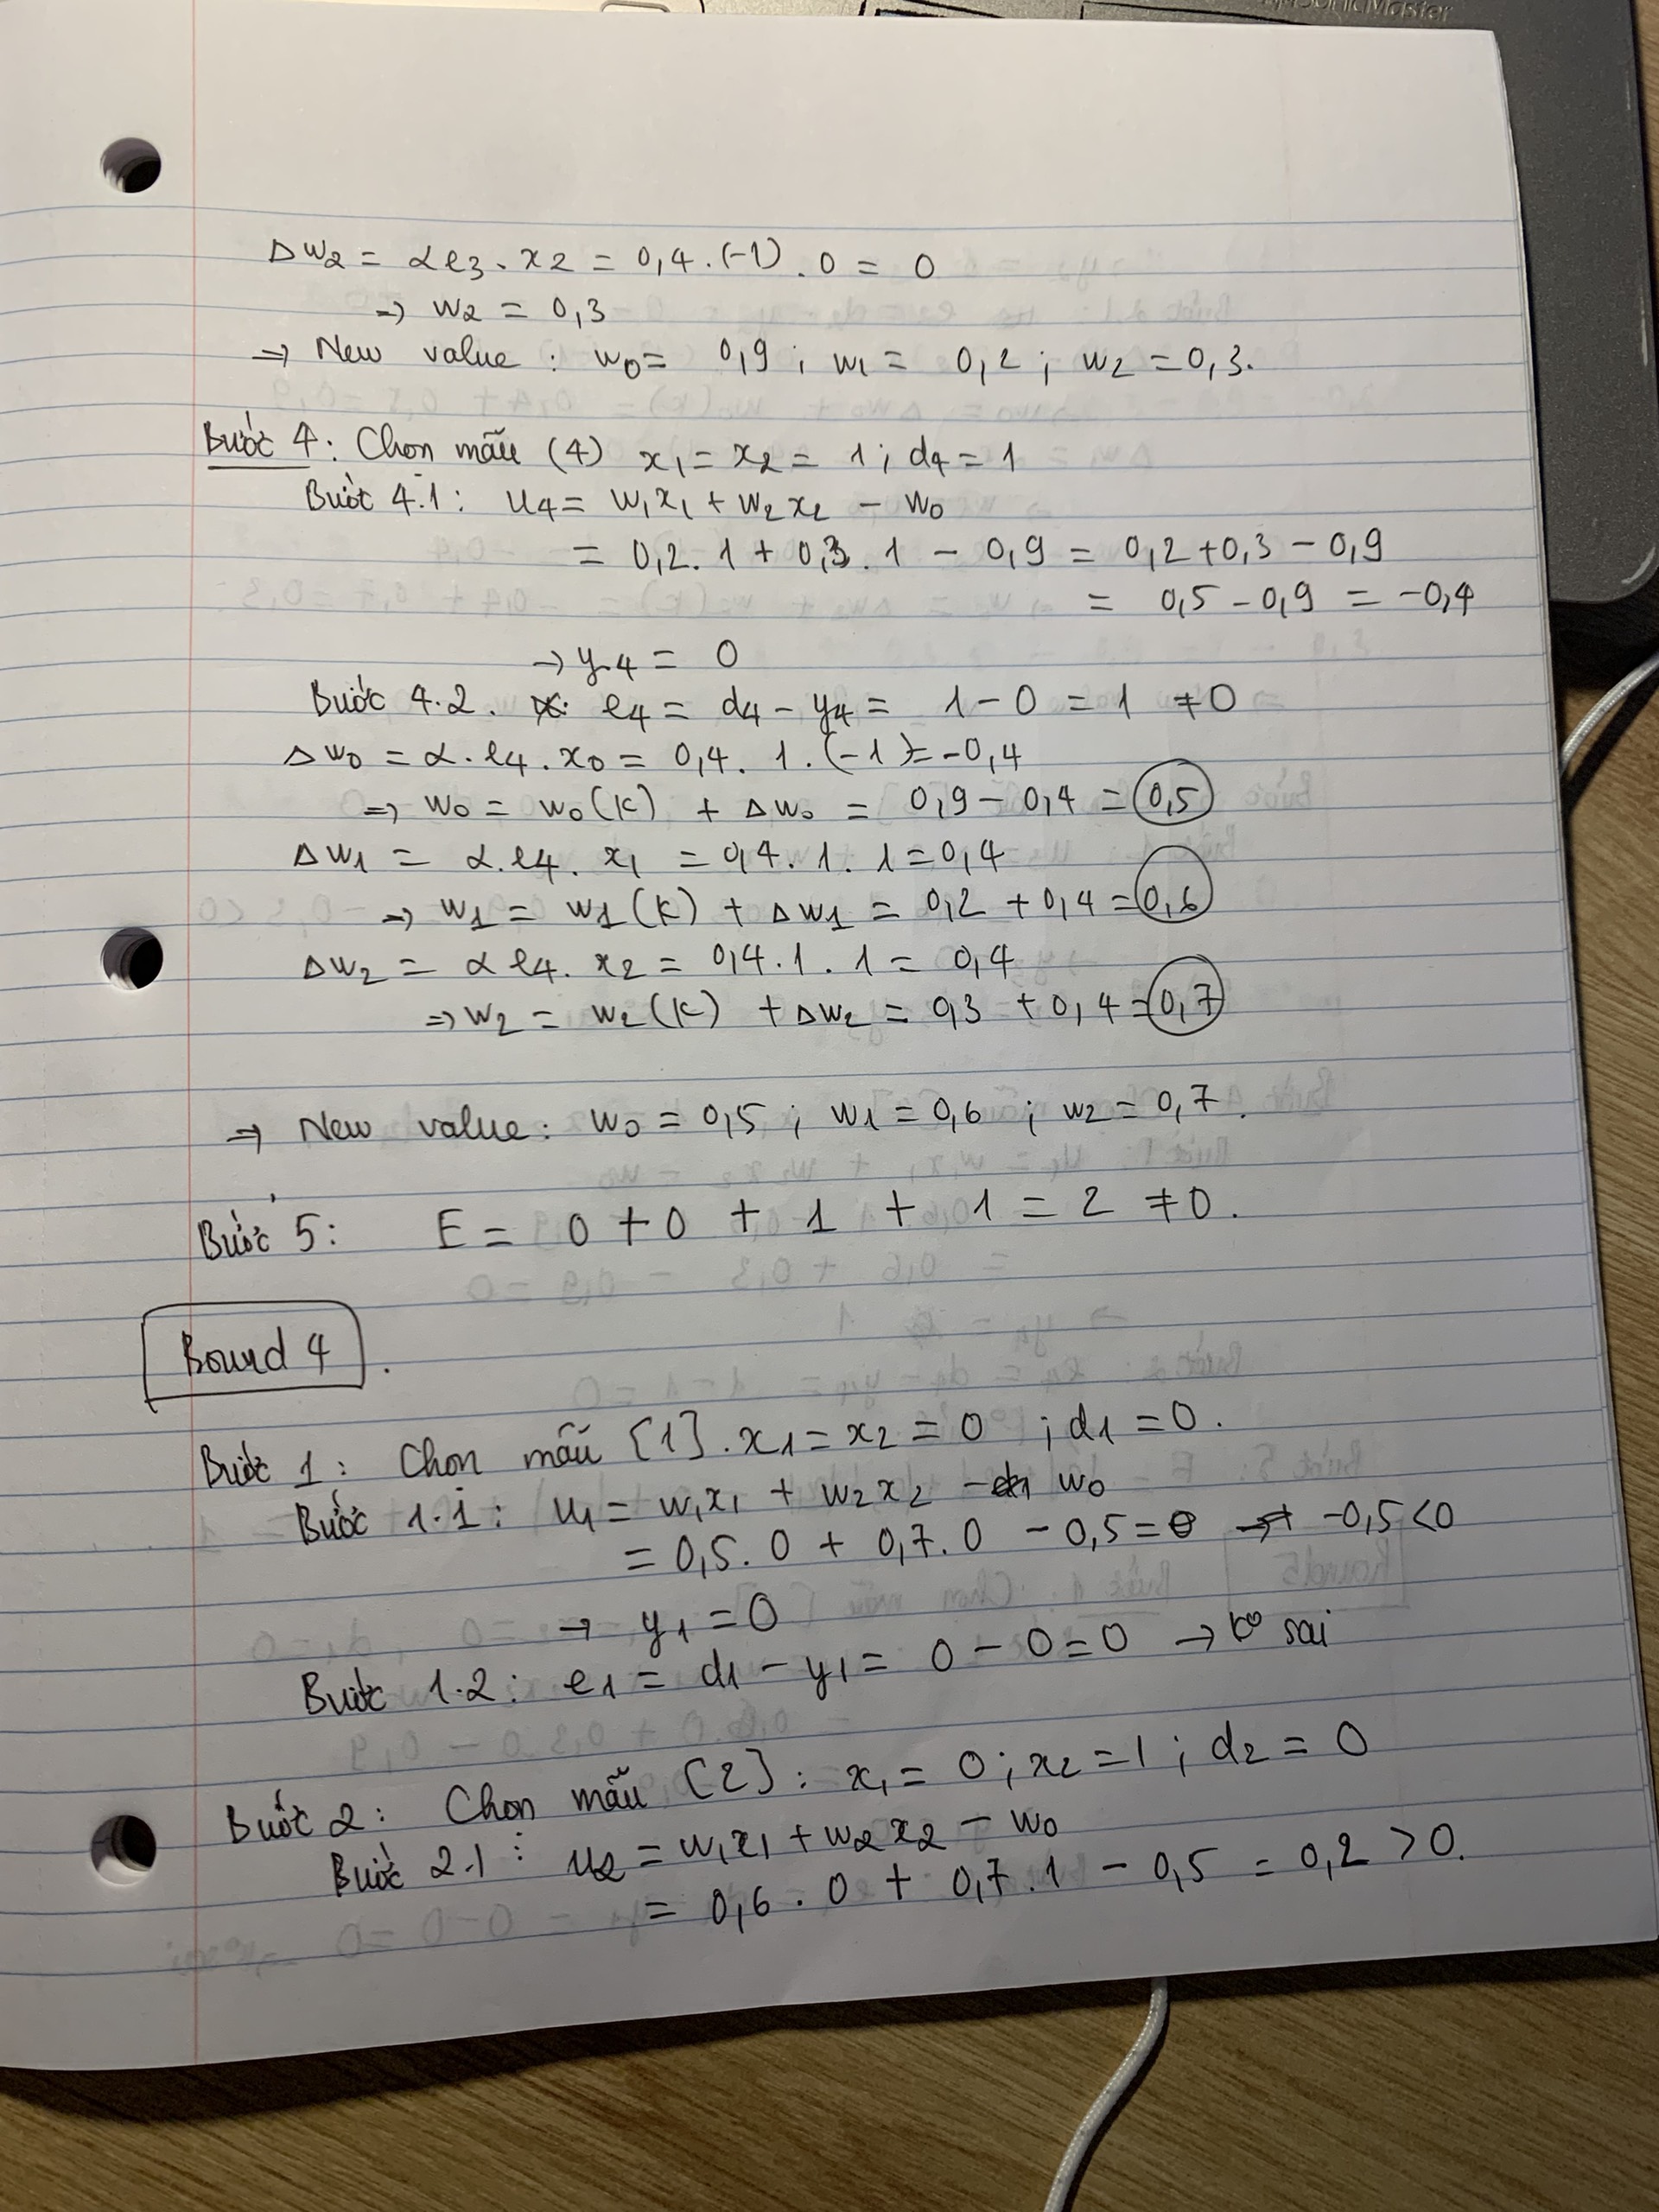 SonicMaster
Δw₂ = αe₃.x₂ = 0,4.(-1).0 = 0
→ w₂ = 0,3
⇒ New value: w₀ = 0,9; w₁ = 0,2; w₂ = 0,3.
Bước 4: Chọn mẫu (4) x₁ = x₂ = 1; d₄ = 1
Bước 4.1: u₄ = w₁x₁ + w₂x₂ - w₀
= 0,2.1 + 0,3.1 - 0,9 = 0,2 + 0,3 - 0,9
= 0,5 - 0,9 = -0,4
→ y₄ = 0
Bước 4.2. e₄ = d₄ - y₄ = 1 - 0 = 1 ≠ 0
Δw₀ = α.e₄.x₀ = 0,4.1.(-1) = -0,4
⇒ w₀ = w₀(k) + Δw₀ = 0,9 - 0,4 = 0,5
Δw₁ = α.e₄.x₁ = 0,4.1.1 = 0,4
⇒ w₁ = w₁(k) + Δw₁ = 0,2 + 0,4 = 0,6
Δw₂ = αe₄.x₂ = 0,4.1.1 = 0,4
⇒ w₂ = w₂(k) + Δw₂ = 0,3 + 0,4 = 0,7
⇒ New value: w₀ = 0,5; w₁ = 0,6; w₂ = 0,7.
Bước 5: E = 0 + 0 + 1 + 1 = 2 ≠ 0.
Round 4.
Bước 1: Chọn mẫu [1]. x₁ = x₂ = 0; d₁ = 0.
Bước 1.1: u₁ = w₁x₁ + w₂x₂ - w₀
= 0,5.0 + 0,7.0 - 0,5 = -0,5 < 0
→ y₁ = 0
Bước 1.2: e₁ = d₁ - y₁ = 0 - 0 = 0 → k° sai
Bước 2: Chọn mẫu [2]: x₁ = 0; x₂ = 1; d₂ = 0
Bước 2.1: u₂ = w₁x₁ + w₂x₂ - w₀
= 0,6.0 + 0,7.1 - 0,5 = 0,2 > 0.